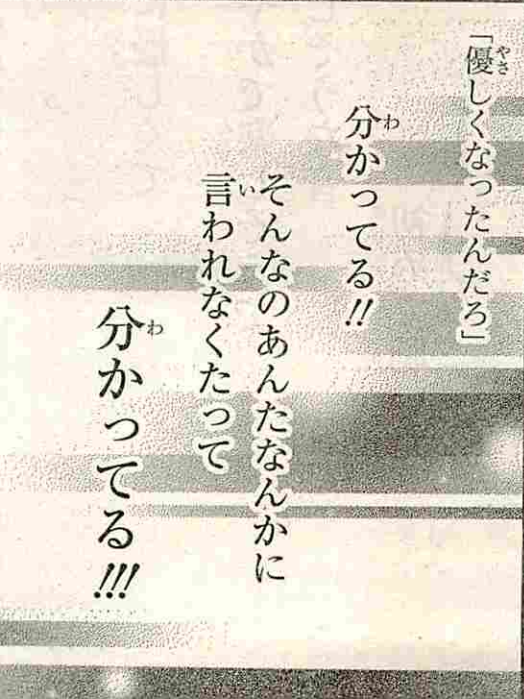 「優しくなったんだろ」
分かってる!!
そんなのあんたなんかに
言われなくたって
分かってる!!!